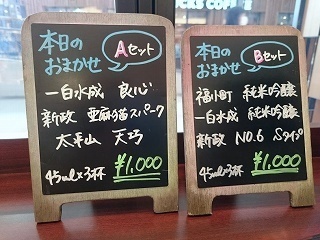 本日の
おまかせ
Aセット
一白水成 良心
新政 亜麻猫スパーク
太平山 天巧
45ml×3杯 ¥1,000
本日の
おまかせ
Bセット
福小町 純米吟醸
一白水成 純米吟醸
新政 NO.6 Sタイプ
45ml×3杯 ¥1,000